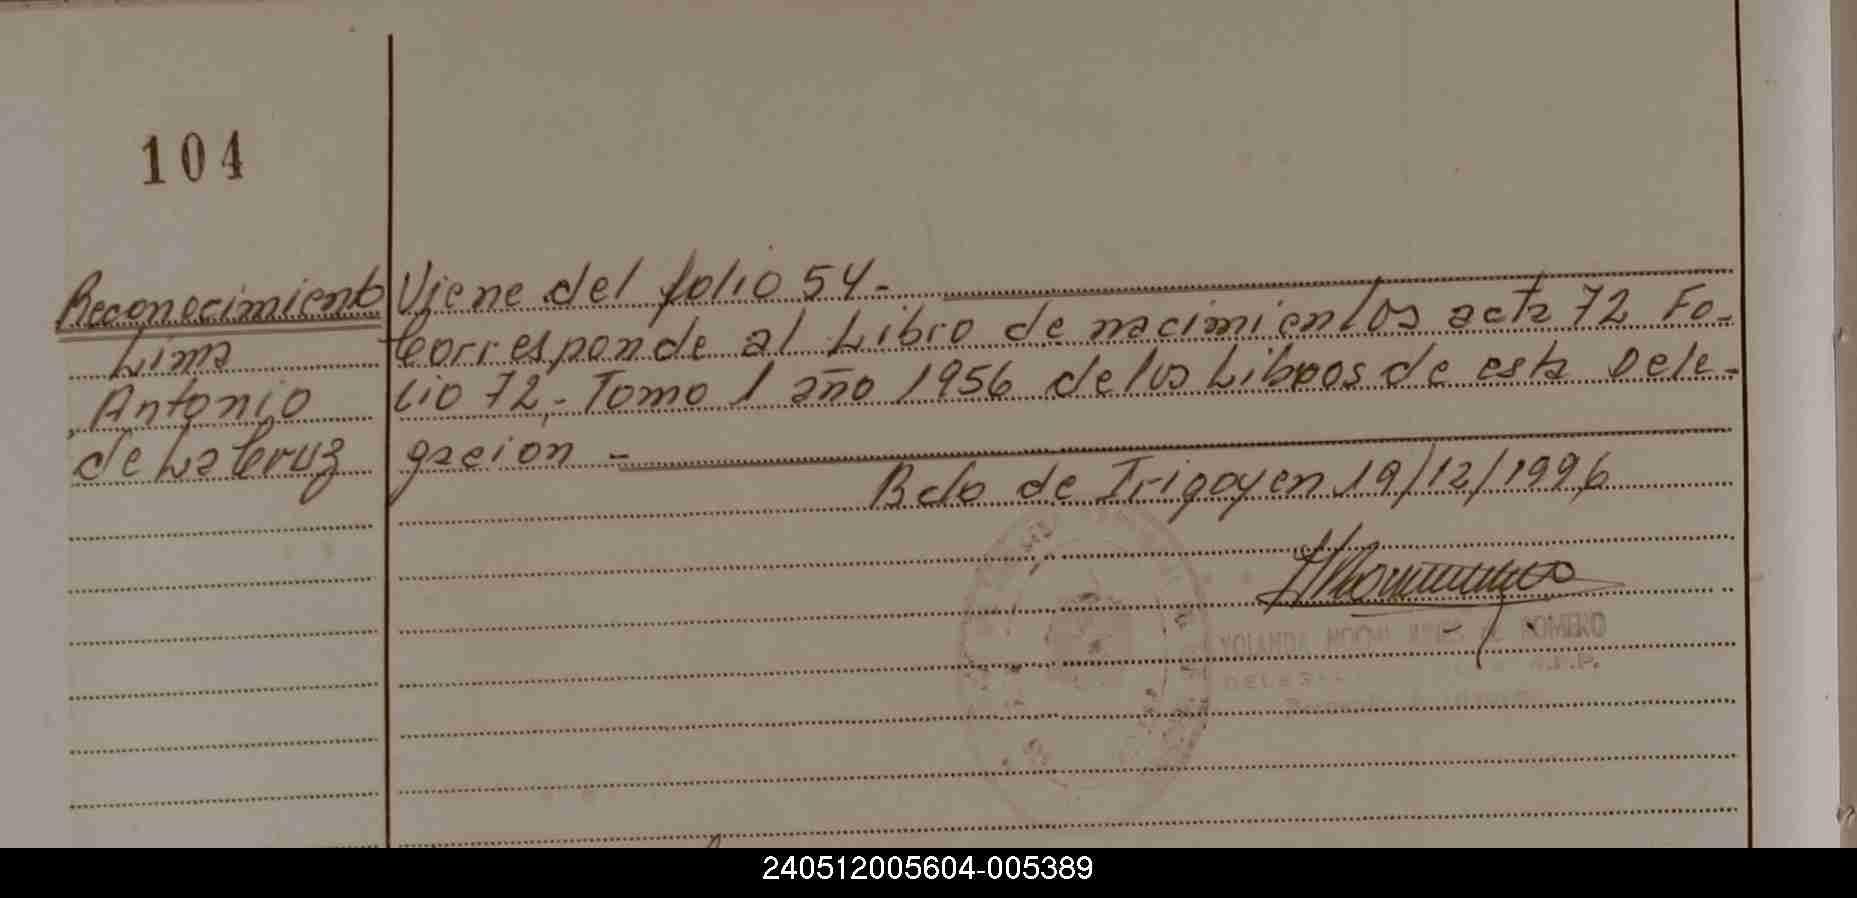 104
Reconocimiento
Lima
Antonio
de La Cruz
Viene del folio 54.-
Corresponde al Libro de nacimientos acta 72 Fo-
lio 72.- Tomo 1 año 1956 de los Libros de esta Dele-
gacion -
Bdo de Irigoyen 19/12/1996
YOLANDA NOEMI DE ROMERO
240512005604-005389